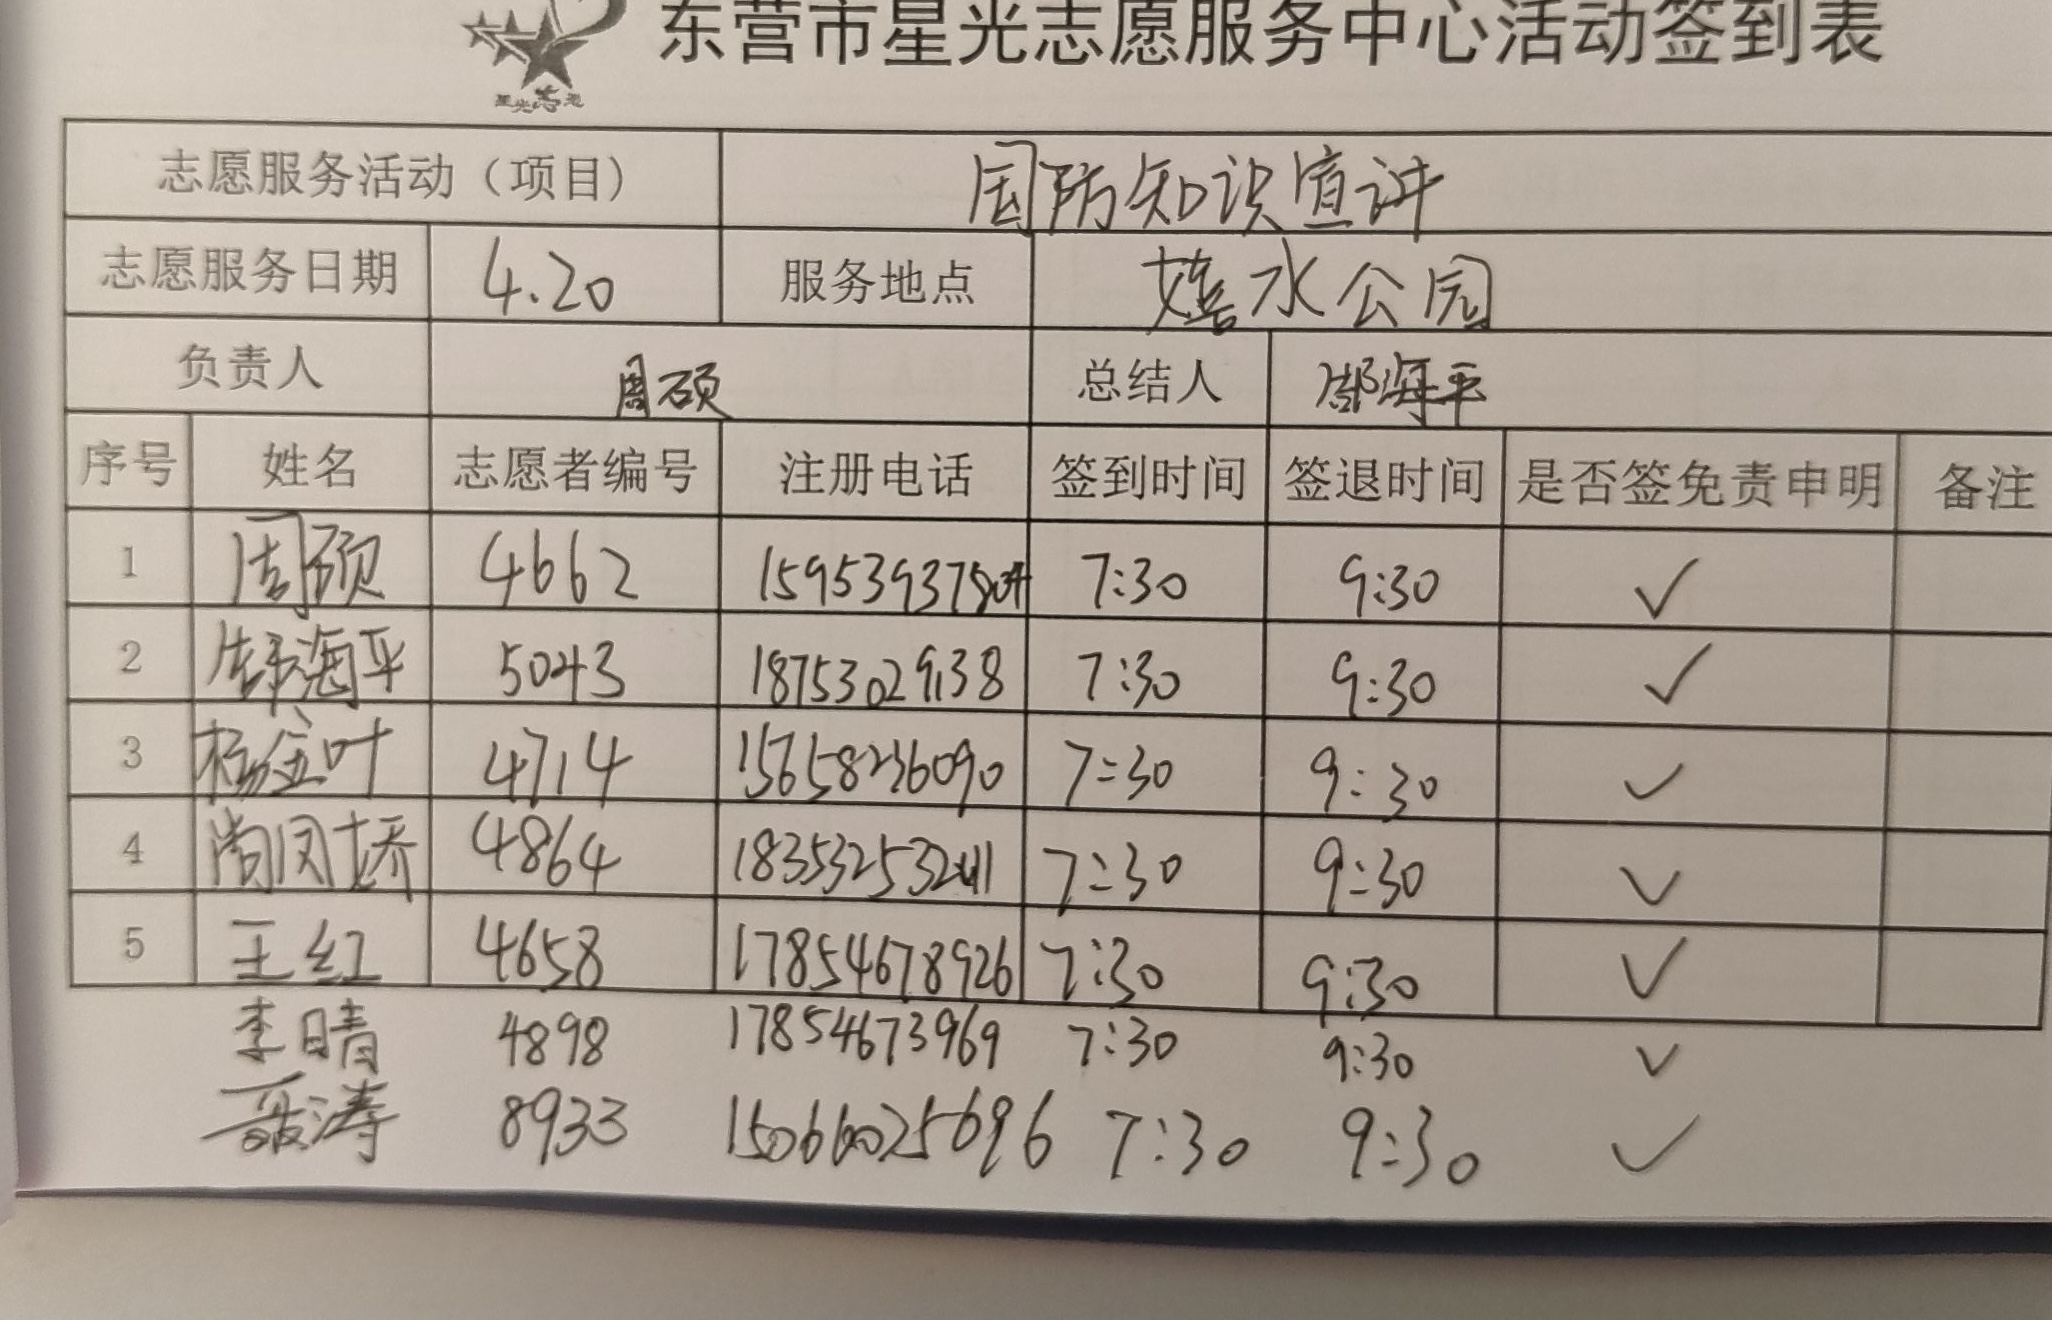 东营市星光志愿服务中心活动签到表
星光志愿
志愿服务活动（项目） 国防知识宣讲
志愿服务日期 4.20 服务地点 嬉水公园
负责人 周硕 总结人 海平
序号 姓名 志愿者编号 注册电话 签到时间 签退时间 是否签免责申明 备注
1 周硕 4662 7:30 9:30 ✓
2 海平 5043 18753029138 7:30 9:30 ✓
3 杨金叶 4714 15658236090 7:30 9:30 ✓
4 尚凤娇 4864 7:30 9:30 ✓
5 王红 4658 17854678926 7:30 9:30 ✓
李晴 4898 17854673969 7:30 9:30 ✓
聂涛 8933 15066025696 7:30 9:30 ✓